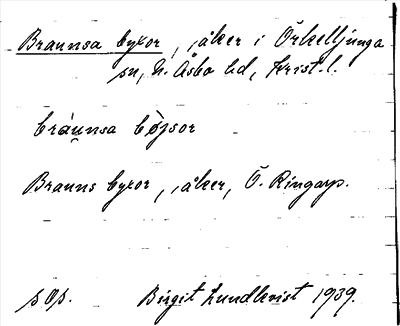 Braunsa bykor, åker i Örkelljunga
sn, N. Åsbo hd, Krist. l.
bràu̯nsa bỳsor
Brauns bykor, åker, Ö. Ringarp.
s Op. Birgit Lundkvist 1939.